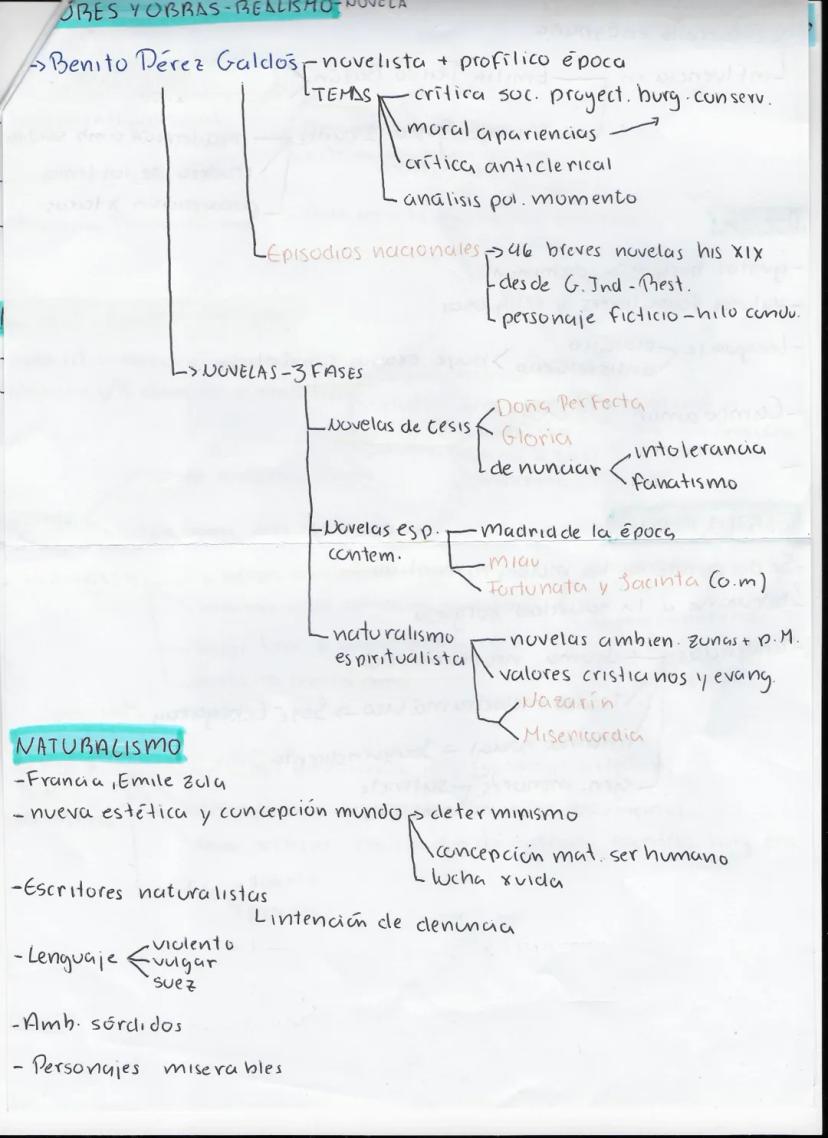 ORES Y OBRAS-REALISMO-NOVELA
→Benito Pérez Galdós novelista + profílico época
TEMAS crítica soc. proyect. burg. conserv.
moral apariencias
crítica anticlerical
análisis pol. momento
Episodios nacionales →46 breves novelas his XIX
desde G. Ind-Rest.
personaje ficticio-hilo conduc.
→NOVELAS-3 FASES
Novelas de tesis Doña Perfecta
Gloria
denunciar intolerancia
fanatismo
Novelas esp. Madrid de la época
contem. Miau
Fortunata y Jacinta (o.m)
naturalismo novelas ambien. zonas + p.M.
espiritualista valores cristianos y evang.
Nazarín
Misericordia
NATURALISMO
-Francia, Emile Zola
- nueva estética y concepción mundo → determinismo
concepción mat. ser humano
lucha x vida
-Escritores naturalistas
intención de denuncia
- Lenguaje violento
vulgar
suez
-Amb. sórdidos
- Personajes miserables